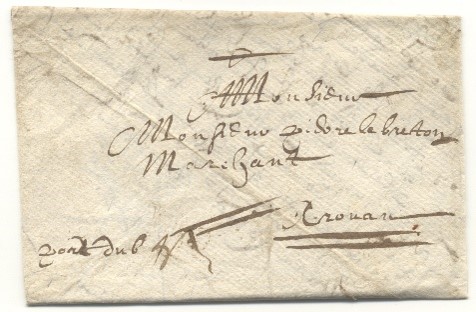 Monsieur
Monsieur pidore le breton
Marchant
A rouan
port du b